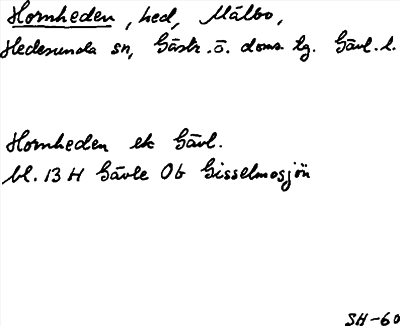 Hornheden, hed, Målbo,
Hedesunda sn, Gästr. ö. doms. tg. Gävl. l.
Hornheden ek Gävl.
bl. 13 H Gävle Ob Gisselmosjön
SH-60